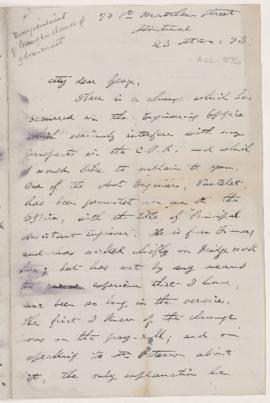 90 St. Matthew Street
Montreal
23 Mar., 93.
My dear George.
There is a change which has
occurred in the Engineering Office
which seriously interfere with my
prospects in the C.P.R. and which
I would like to explain to you.
One of the Asst Engineers,
has been promoted over me in the
Office, with the title of Principal
Assistant Engineer. He is from
and has worked chiefly on Bridge work
but has not by any means
the experience that I have,
nor been so long in the service.
The first I knew of the change
was on the pay-roll; and on
speaking to Mr Peterson about
it, the only explanation he